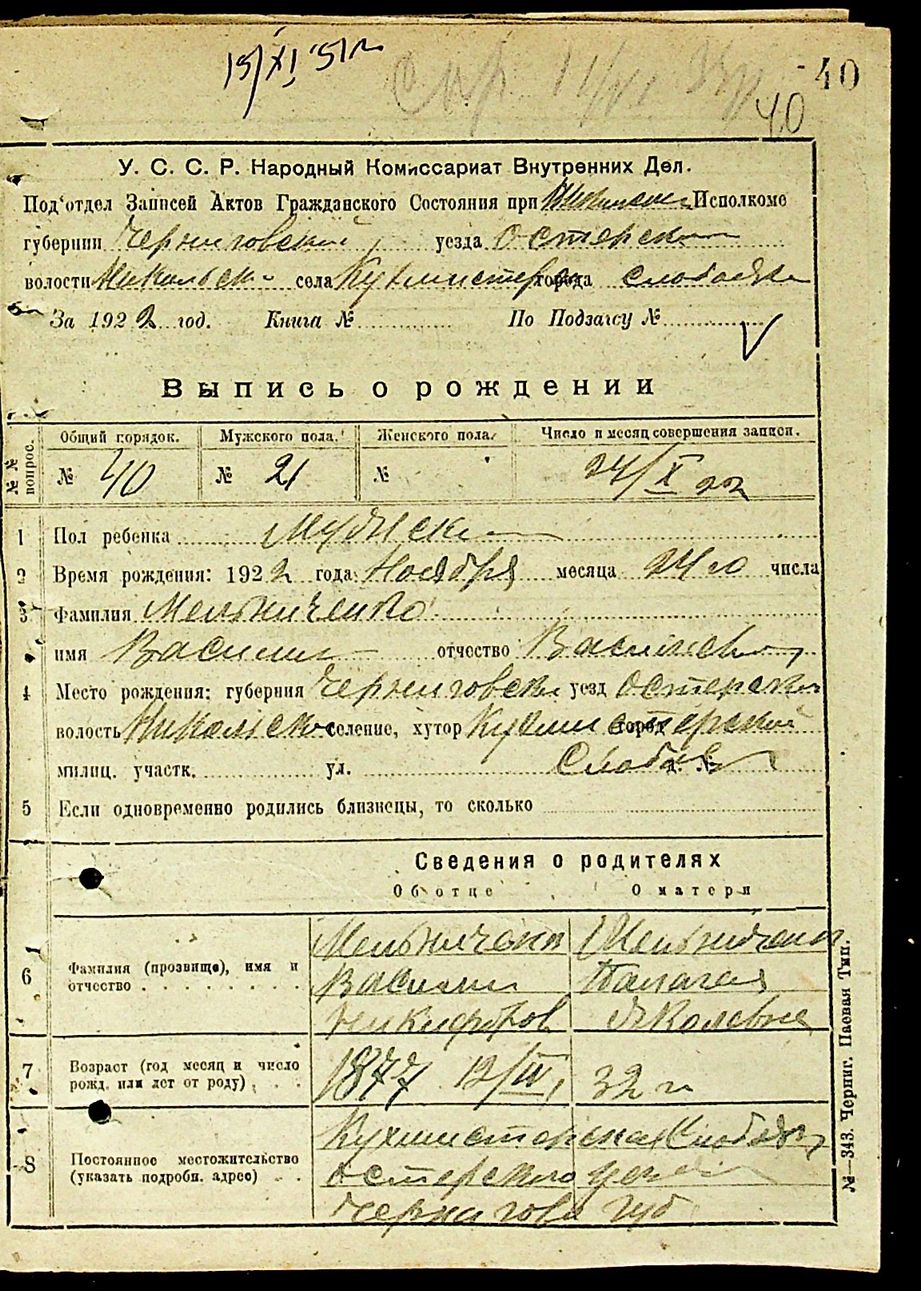 15/XI 51 г.
- 40
40
У. С. С. Р. Народный Комиссариат Внутренних Дел.
Под'отдел Записей Актов Гражданского Состояния при Исполкоме
губернии Черниговской уезда Остерск
волости Никольск села Кухмистерск города слободка
За 1922 год. Книга № По Подзагсу №
Выпись о рождении
№ № вопрос. Общий порядок. Мужского пола. Женского пола. Число и месяц совершения записи.
№ 40 № 21 № 24/X 22
1 Пол ребенка Мужск
2 Время рождения: 1922 года Ноября месяца 24го числа
3 Фамилия Мельниченко
имя Василий отчество Васильев
4 Место рождения: губерния Черниговск уезд Остерский
волость Никольско селение, хутор Кухмистерской город
милиц. участк. ул. Слободка
5 Если одновременно родились близнецы, то сколько
Сведения о родителях
Об отце О матери
6 Фамилия (прозвище), имя и отчество
Мельниченко Мельниченко
Василий Палагея
Никифоров Яковлевна
7 Возраст (год месяц и число рожд. или лет от роду) 1877 12/IV, 32 г
8 Постоянное местожительство (указать подробн. адрес)
Кухмистерская Слободка
Остерского уезда
Чернигов губ
№—343. Черниг. Паевая Тип.